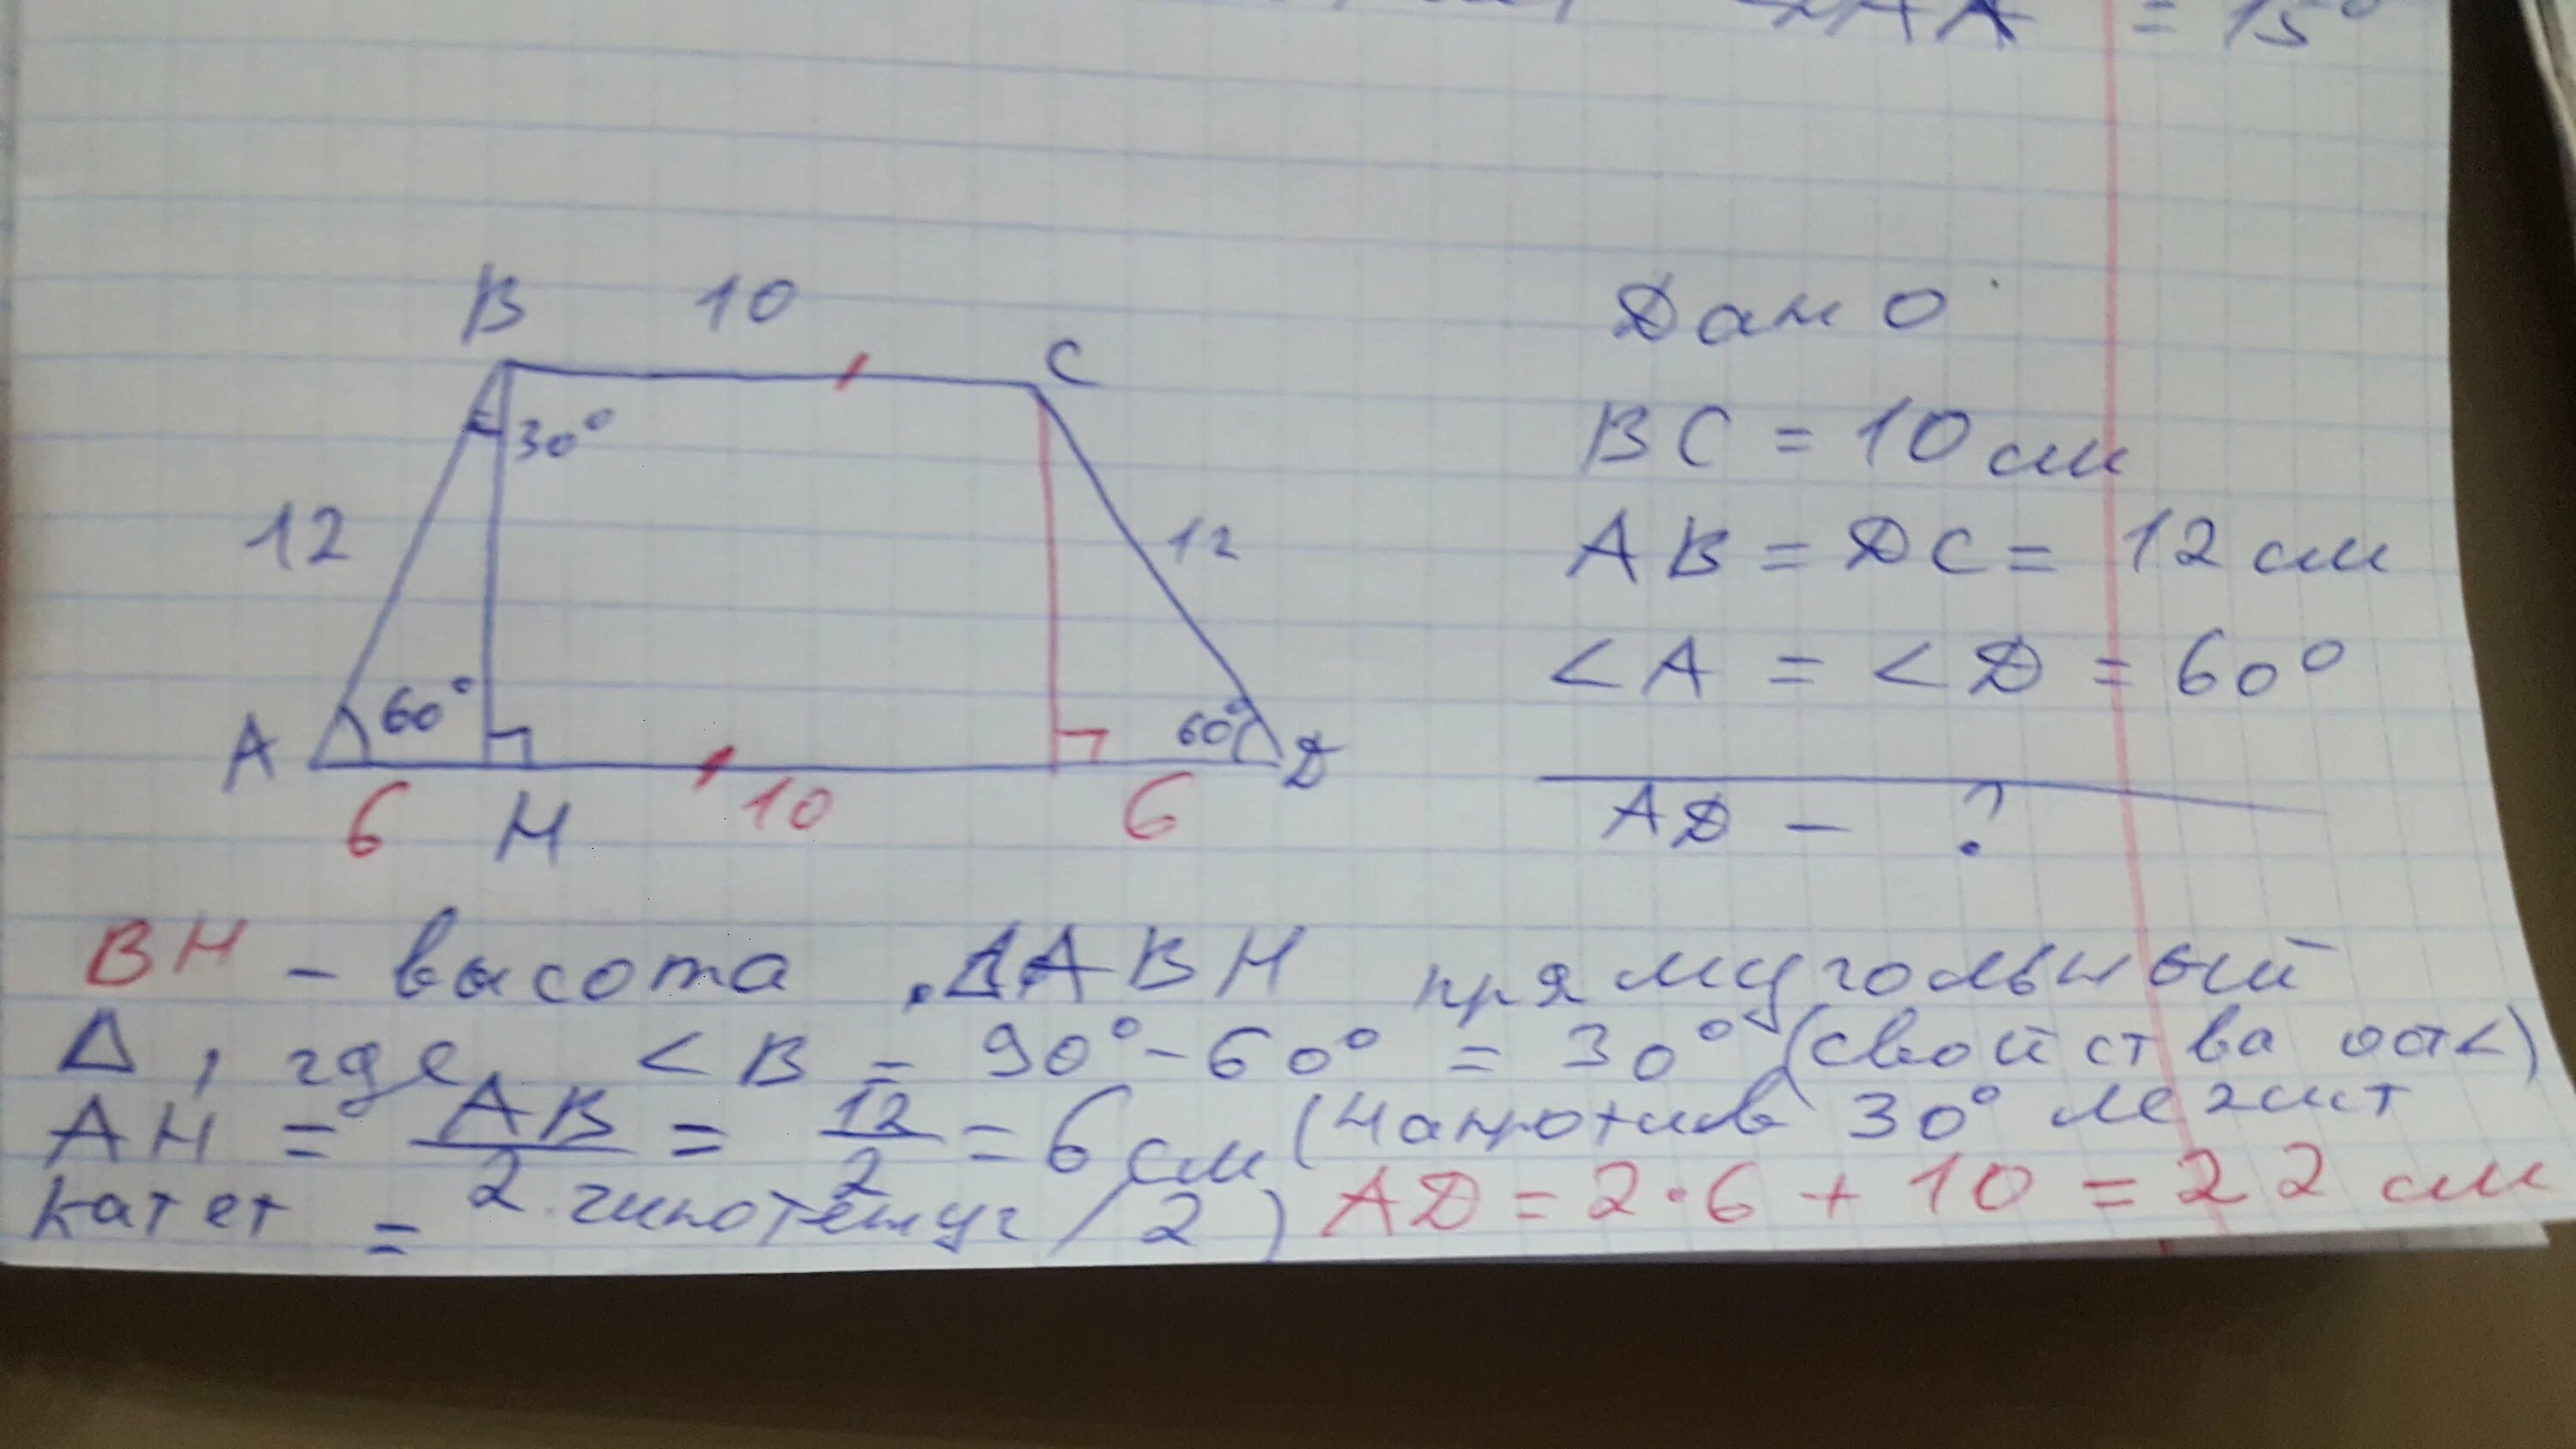 = 15°
B 10 C
30°
12 12
A 60° 60° D
6 H 10 6
Дано
BC = 10 см
AB = DC = 12 см
<A = <D = 60°
AD - ?
BH - высота . ΔABH прямугольный
Δ, где <B = 90° - 60° = 30° (свойства ост<)
AH = AB/2 = 12/2 = 6 см (напротив 30° лежит
катет = гипотенуз/2) AD = 2·6 + 10 = 22 см